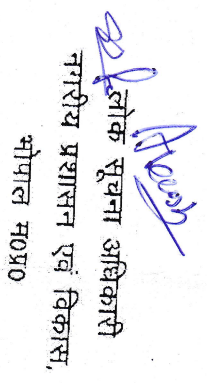 लोक सूचना अधिकारी
नगरीय प्रशासन एवं विकास,
भोपाल म०प्र०